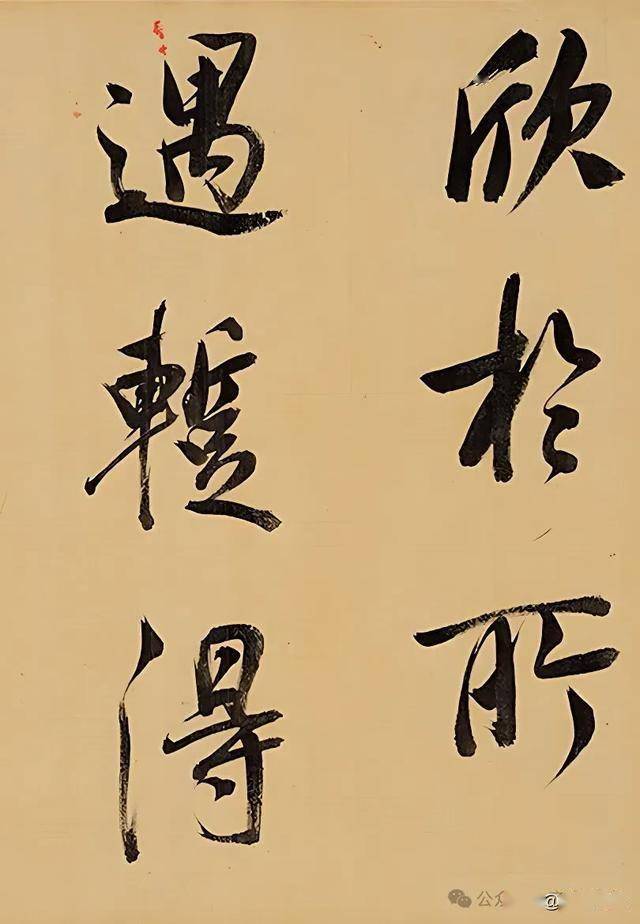 欣於所
遇蹔得
公众
@